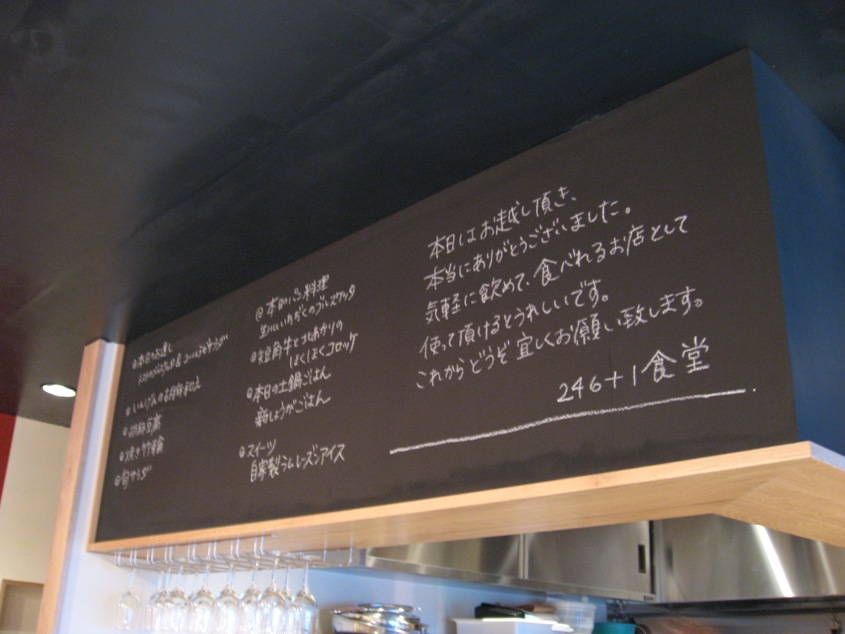 ◎本日のお通し
◎いんげんの胡麻和え
豆腐
◎旬サラダ
◎本日のパン料理
生ハムいちぢくのブルスケッタ
◎短角牛と北あかりの
ほくほくコロッケ
◎本日の土鍋ごはん
新しょうがごはん
◎スイーツ
自家製ラムレーズンアイス
本日はお越し頂き、
本当にありがとうございました。
気軽に飲めて、食べれるお店として
使って頂けるとうれしいです。
これからどうぞ宜しくお願い致します。
246+1食堂